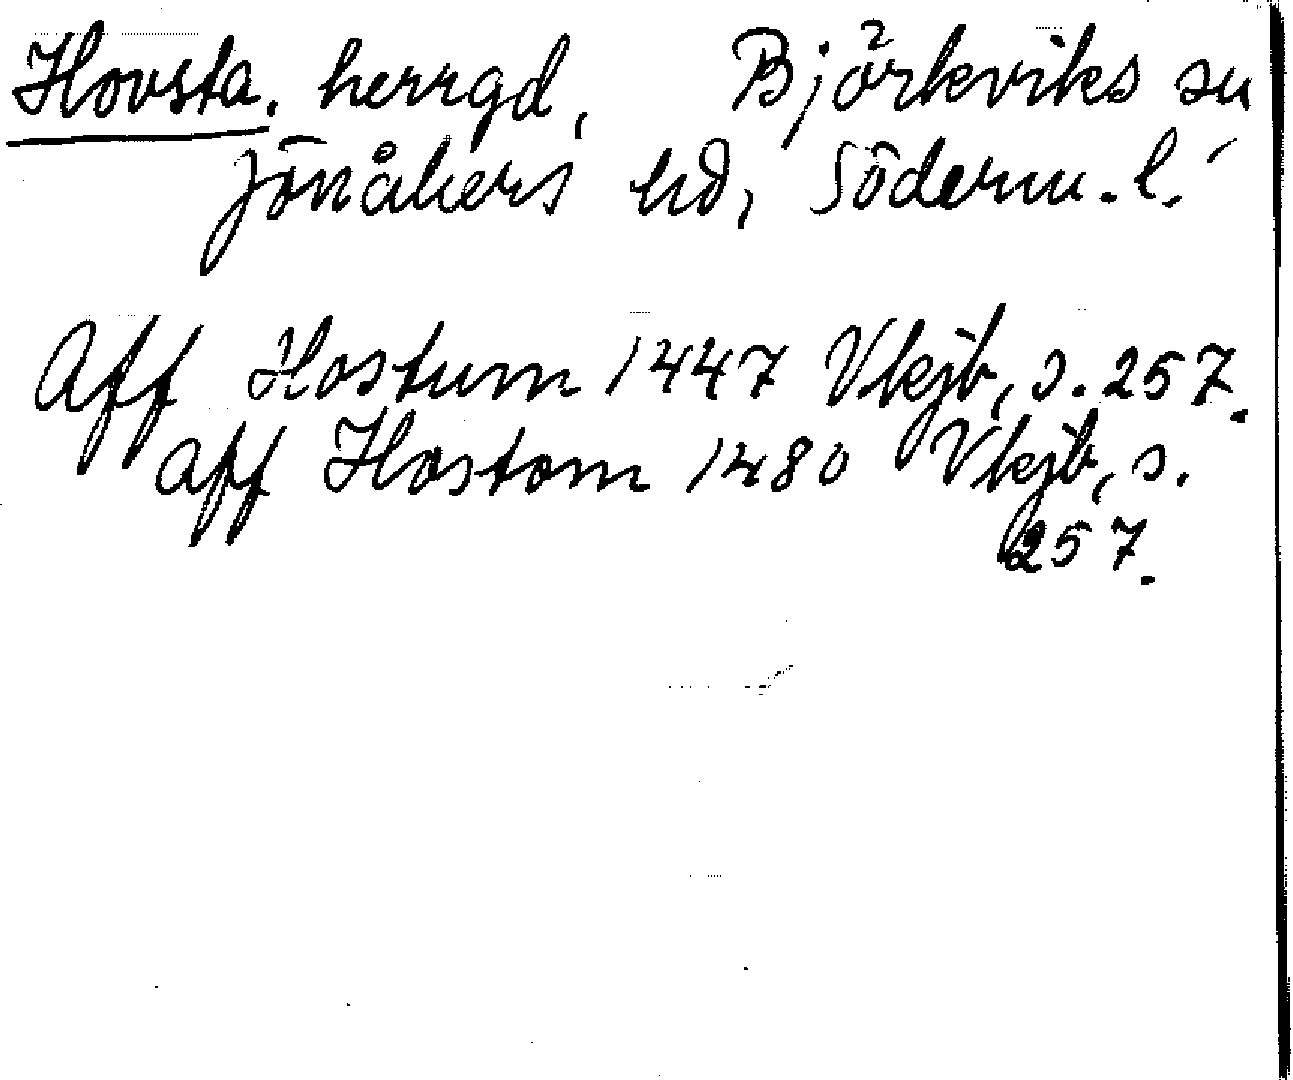 Hovsta. herrgd, Björkviks sn
Jönåkers hd, Söderm. l.
Aff Hostum 1447 Vkjb, s. 257.
aff Hostom 1480 Vkjb, s.
257.